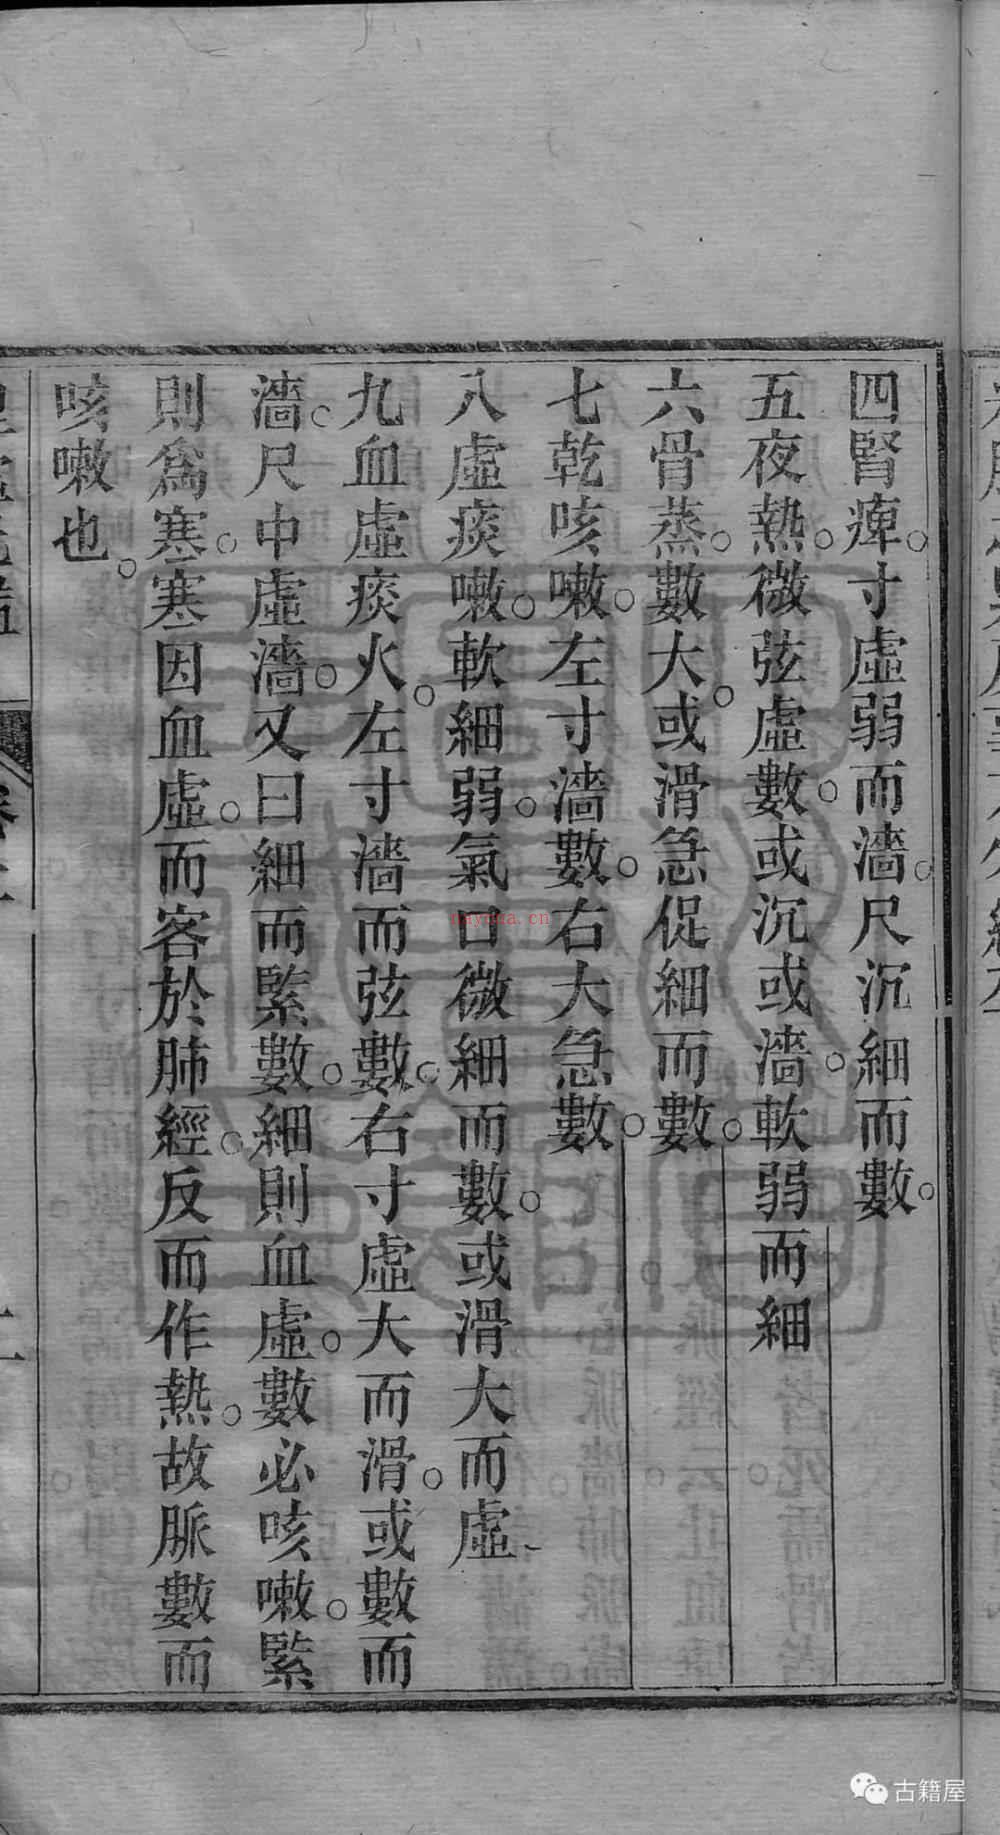 四腎痺。寸虛弱而濇。尺沉細而數。
五夜熱。微弦虛數。或沉或濇。軟弱而細
六骨蒸。數大。或滑急促細而數。
七乾咳嗽。左寸濇數。右大急數。
八虛痰嗽。軟細弱。氣口微細而數。或滑大而虛
九血虛痰火。左寸濇而弦數。右寸虛大而滑。或數而
濇。尺中虛濇。又曰細而緊數。細則血虛。數必咳嗽。緊
則爲寒。寒因血虛。而客於肺經。反而作熱。故脈數而
咳嗽也。
nayona.cn
古籍屋